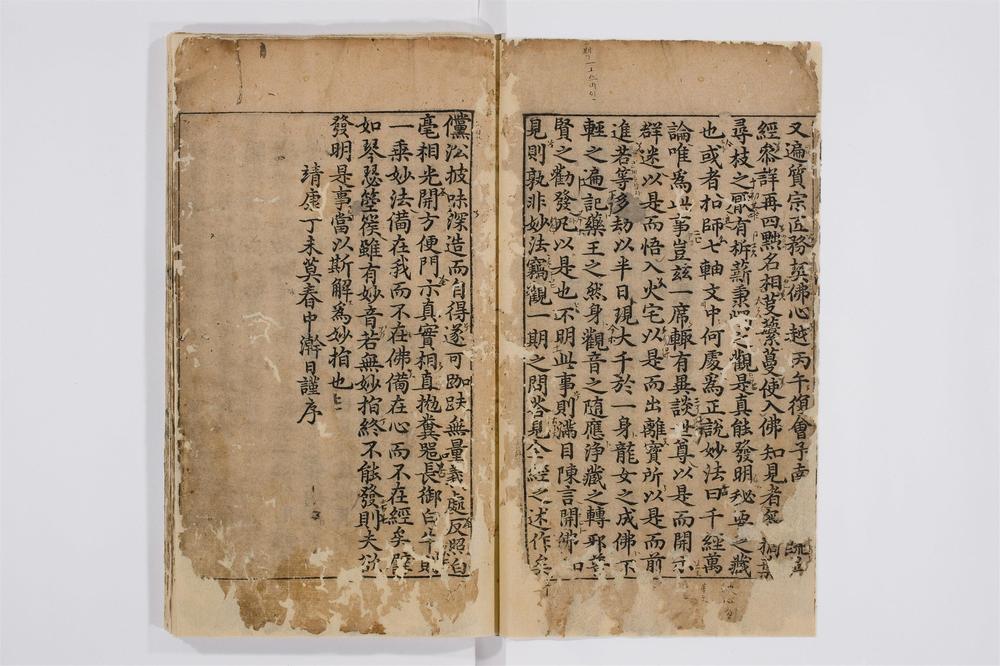 又遍質宗匠務契佛心越丙午復會子南
經參詳再四黜名相芟蘩蔓使入佛知見者
尋枝之有析薪秉之觀是真能發明秘要之藏
也或者扣師七軸文中何處爲正說妙法曰千經萬
論唯爲此事豈玆一席輙有異談世尊以是而開示
群迷以是而悟入火宅以是而出離寳所以是而前
進若等移劫以半日現大千於一身龍女之成佛下
輕之遍記藥王之然身觀音之隨應淨藏之轉邪普
賢之勸發凡以是也不明此事則滿目陳言開佛
見則孰非妙法竊觀一期之問荅見全經之述作矣
儻㳂披味深造而自得遂可跏趺無量義處反照白
毫相光開方便門示真實相直抛糞器長御白牛則
一乗妙法備在我而不在佛備在心而不在經矣譬
如琴瑟箜篌雖有妙音若無妙指終不能發則夫欲
發明是事當以斯解爲妙指也
靖康丁未莫春中澣日謹序